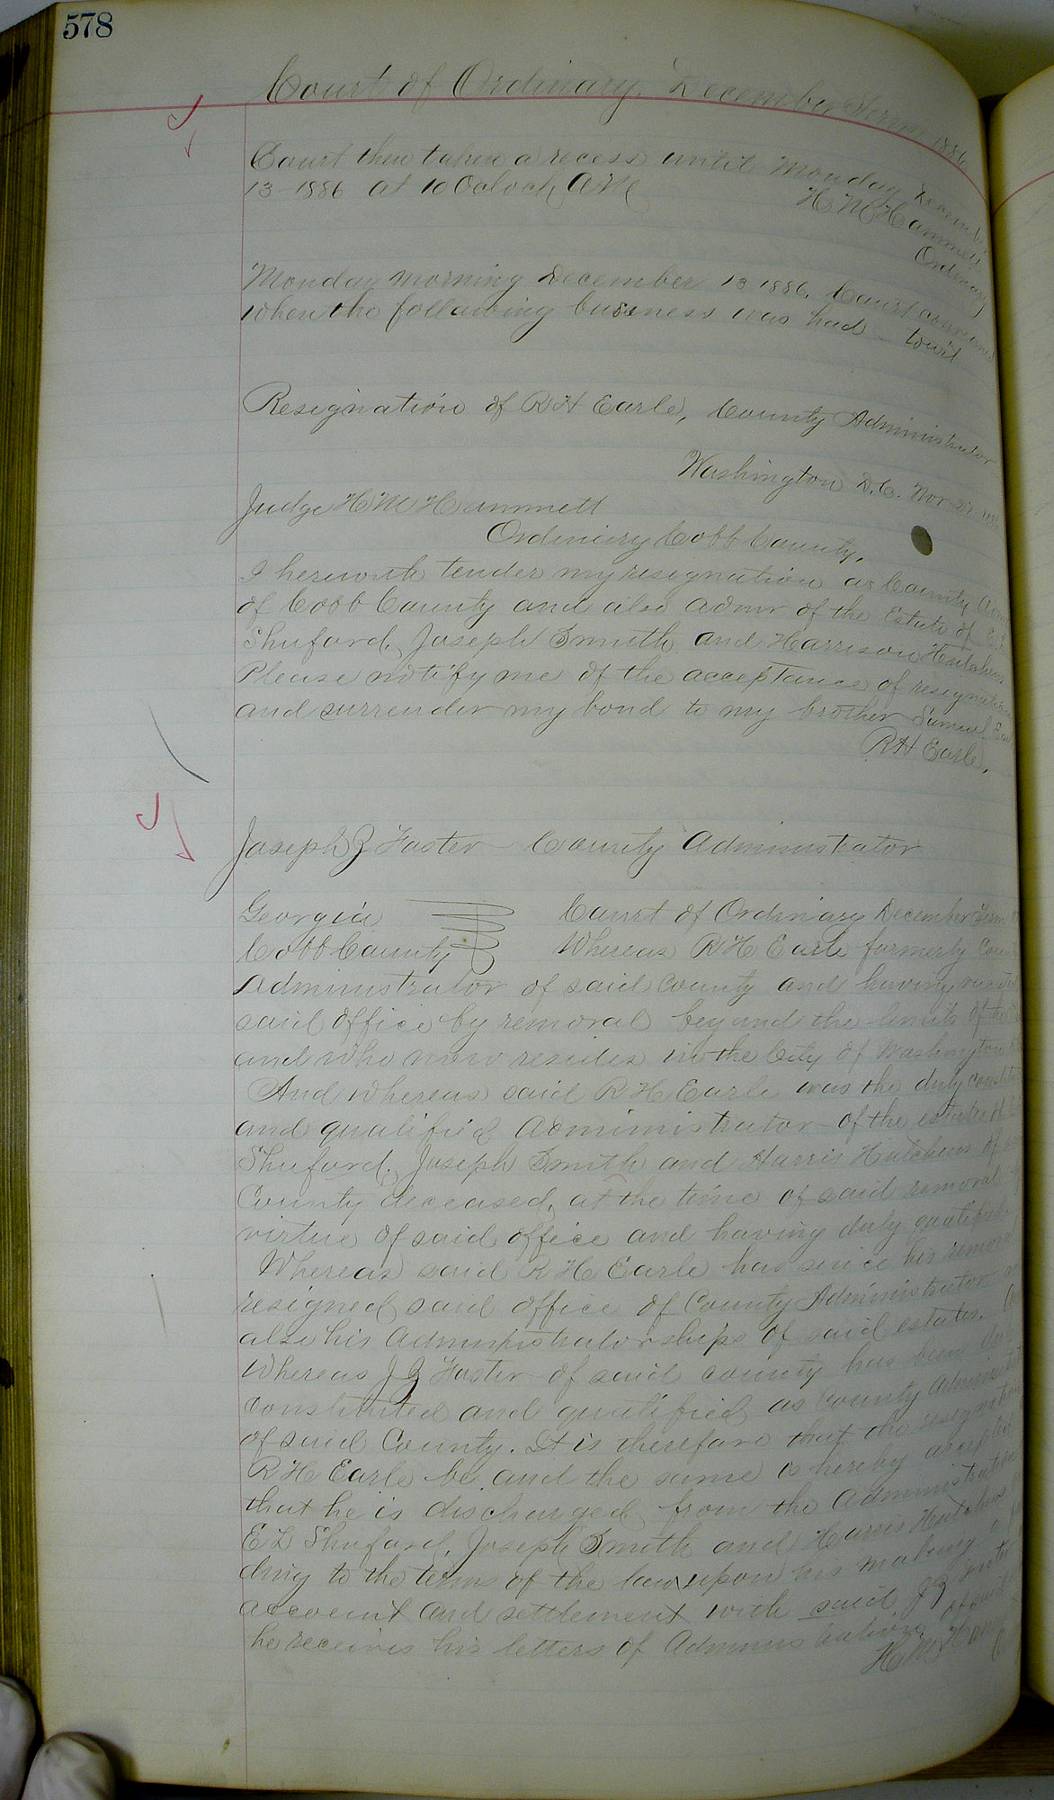 578
Court of Ordinary, December Term 1886
Court then taken a recess until Monday Decemb
13 1886 at 10 Oclock, AM
H M Hammett
Ordinary
Monday morning December 13 1886. Court convened
when the following business was had towit
Resignation of R H Earle, County Administrator
Washington D.C. Nov 27
Judge H M Hammett
Ordinary Cobb County,
I herewith tender my resignation as County Adm
of Cobb County and also admr of the Estate of E L
Shuford, Joseph Smith and Harrison
Please notify me of the acceptance of resignation
and surrender my bond to my brother Samuel Ear
R H Earle,
Joseph Z Foster County Administrator
Georgia Court of Ordinary December Term
Cobb County Whereas R H Earle formerly Coun
Administrator of said County and having
said office by removal beyond the limits of the
and who now resides in the City of Washington
And whereas said R H Earle was the duly constitu
and qualified Administrator of the estate of
Shuford, Joseph Smith and Harris Hutchens of
County deceased, at the time of said removal
virtue of said office and having duly qualified
Whereas said R H Earle has since his remova
resigned said office of County Administrator
also his Administratorships of said estates.
Whereas J Z Foster of said county has been du
constituted and qualified as County Administ
of said County. It is therefore that the resignation
R H Earle be and the same is hereby accepted
that he is discharged from the Administration
E L Shuford, Joseph Smith and Harris Hutchens
ding to the terms of the law upon his making a
account and settlement with said J Z
he receives his letters of Administration.
H M Ham